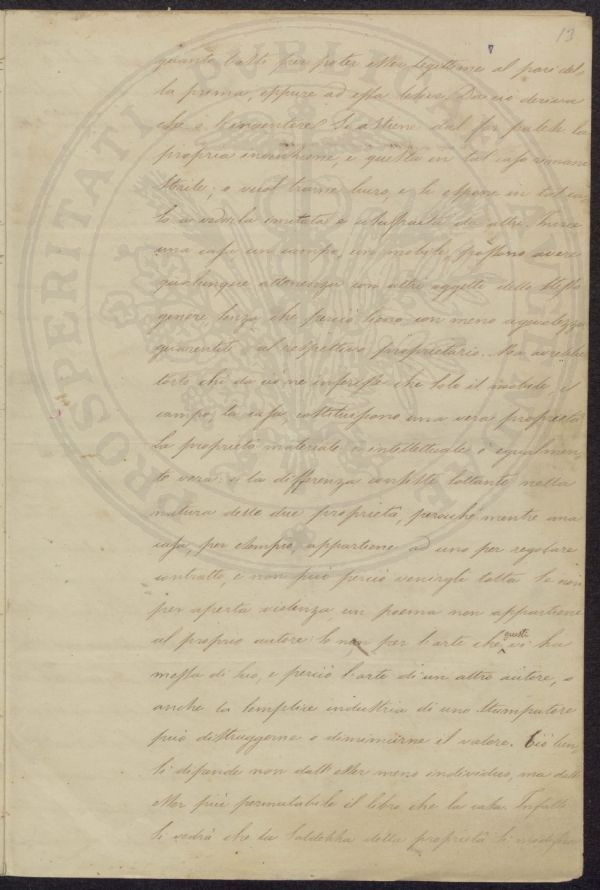 13
quanto basti per poter esser legittima al pari del-
la prima, oppure ad essa Da ciò deriva
che o l'inventore si astiene dal far palese la
propria invenzione, e questa in tal caso rimane
sterile; o vuol trarne lucro, e la espone in tal ca-
so a vederla imitata e da altri. Invece
una casa un campo, un mobile, possono avere
qualunque attenenza con altri oggetti dello stesso
genere senza che perciò siano con meno
guarentiti al respettivo proprietario. Ma avrebbe
torto chi da ciò ne inferisse che solo il mobile, il
campo, la casa, costituiscono una vera proprietà.
La proprietà materiale e intellettuale è egualmen-
te vera: e la differenza consiste soltanto nella
natura delle due proprietà, perocché mentre una
casa, per esempio, appartiene ad uno per regolare
contratto, e non può perciò venirgli tolta se non
per aperta violenza, un poema non appartiene
al proprio autore se non per l'arte che questi vi ha
messa di suo, e perciò l'arte di un altro autore, o
anche la semplice industria di uno stampatore
può distruggerne o diminuirne il valore. Ciò
si dipende non dall'esser meno individuo, ma dall'
esser più permutabile il libro che la casa. Infatti
si vedrà che la saldezza della proprietà si modifica
PROSPERITATI PUBLICAE AUGENDAE